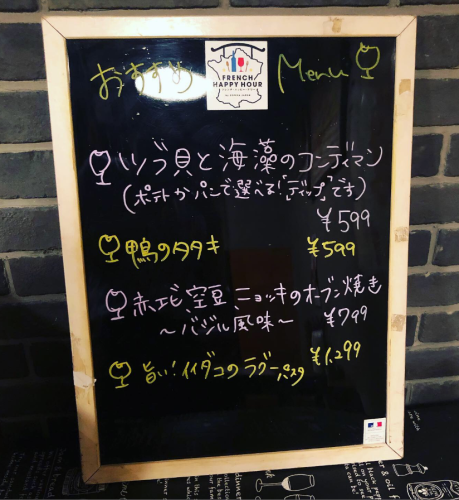 おすすめ Menu
FRENCH
HAPPY HOUR
ツブ貝と海藻のコンディマン
(ポテトかパンで選べる!「ディップ」です)
¥599
鴨のタタキ ¥599
赤エビ 空豆 ニョッキのオーブン焼き
~バジル風味~ ¥799
旨い!イイダコのラグーパスタ ¥1,299